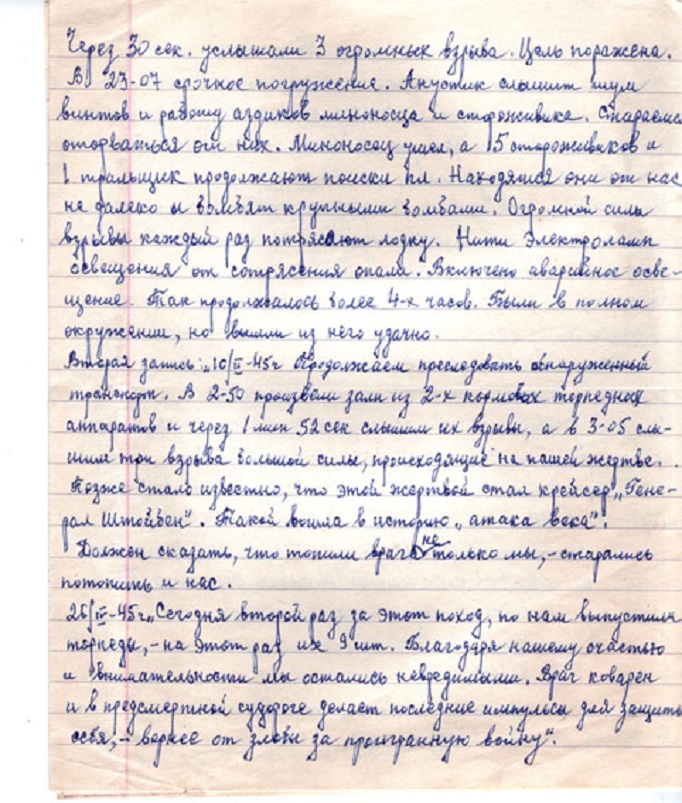 Через 30 сек. услышали 3 огромных взрыва. Цель поражена.
В 23-07 срочное погружение. Акустик слышит шум
винтов и работу аздиков миноносца и сторожевика. Стараемся
оторваться от них. Миноносец ушел, а 5 сторожевиков и
1 тральщик продолжают поиски пл. Находятся они от нас
не далеко и бомбят крупными бомбами. Огромной силы
взрывы каждый раз потрясают лодку. Нити электроламп
освещения от сотрясения опали. Включено аварийное осве-
щение. Так продолжалось более 4-х часов. Были в полном
окружении, но вышли из него удачно.
Вторая запись: „10/II-45г Продолжаем преследовать обнаруженный
транспорт. В 2-50 произвели залп из 2-х кормовых торпедных
аппаратов и через 1 мин 52 сек слышим их взрывы, а в 3-05 слы-
шим три взрыва большой силы, происходящие на нашей жертве.
Позже стало известно, что этой жертвой стал крейсер „Гене-
рал Штойбен". Такой вошла в историю „атака века".
Должен сказать, что топили врага не только мы, - старались
потопить и нас.
26/IV-45г „Сегодня второй раз за этот поход, по нам выпустили
торпеды, - на этот раз их 9 шт. Благодаря нашему счастью
и внимательности мы остались невредимыми. Враг коварен
и в предсмертной судороге делает последние импульсы для защиты
себя, - вернее от злобы за проигранную войну".